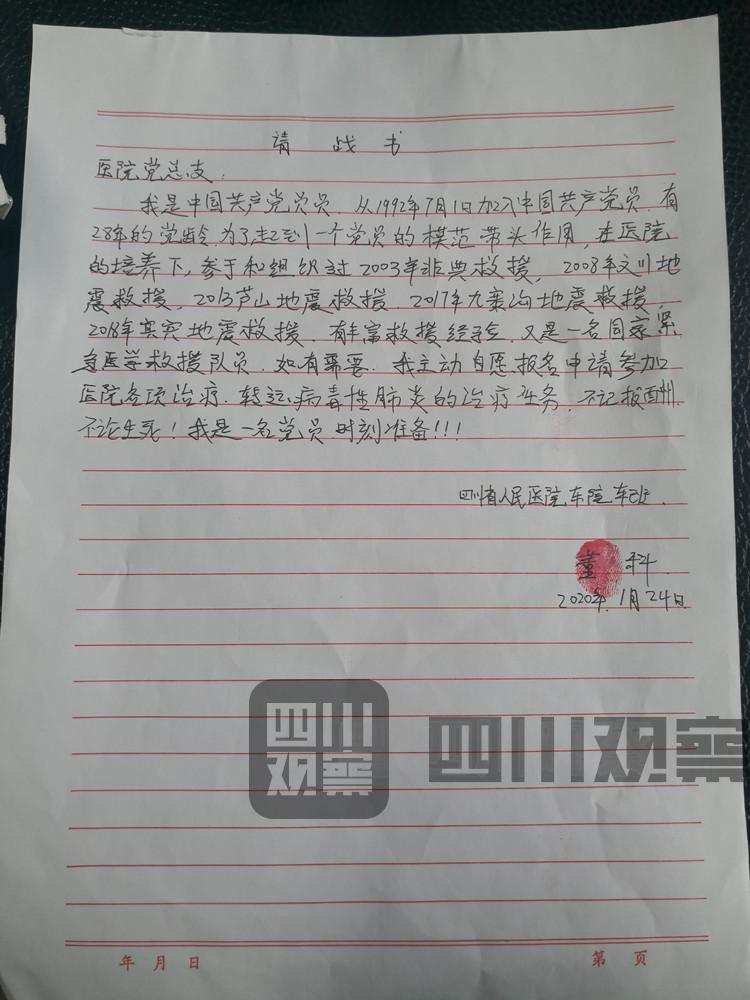 请战书
医院党总支:
我是中国共产党党员,从1992年7月1日加入中国共产党员,有
28年的党龄,为了起到一个党员的模范带头作用,在医院
的培养下,参于和组织过2003年非典救援,2008年汶川地
震救援,2013芦山地震救援,2017年九寨沟地震救援,
2018年宾地震救援,有丰富救援经验,又是一名国家紧
急医学救援队员,如有需要,我主动自愿报名申请参加
医院各项治疗,转运病毒性肺炎的治疗任务,不记报酬,
不论生死!我是一名党员时刻准备!!!
四川省人民医院车院车班.
董科.
2020年1月24日
四川
观察
四川观察
年 月 日
第 页